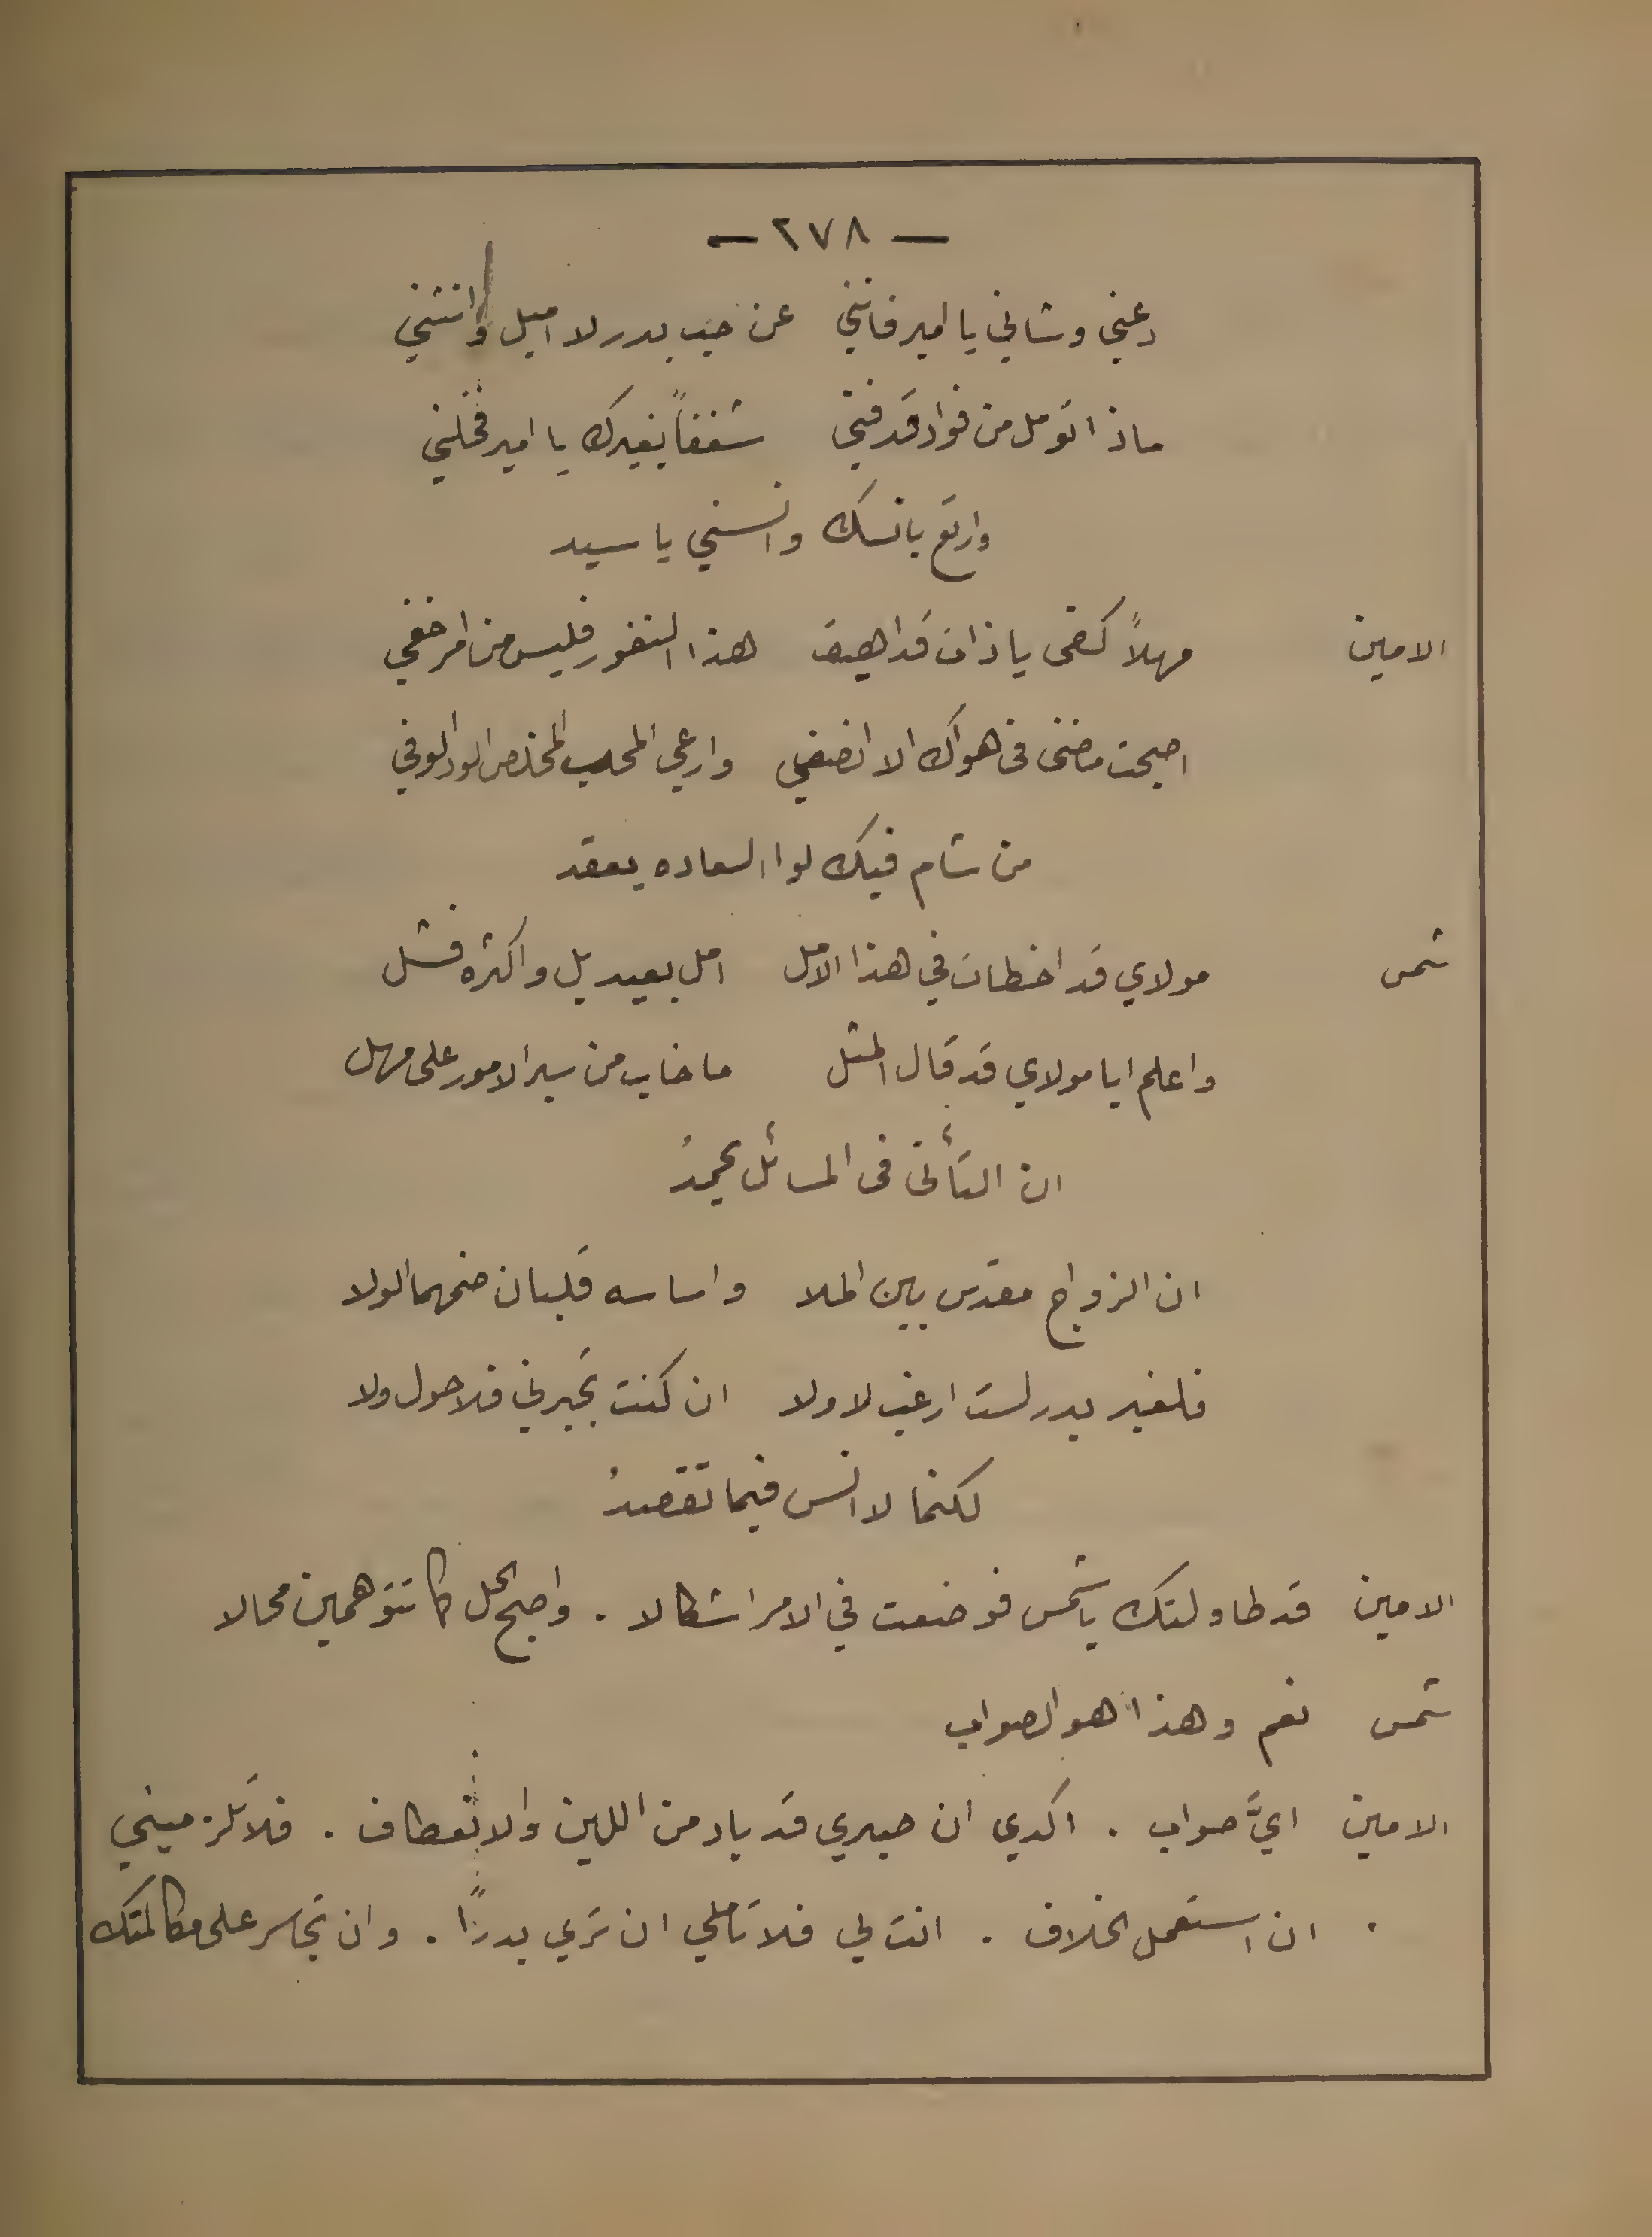 — ٢٧٨ —
دعني وشاني يا امير فانني عن حب بدر لا اميل وانثني
ماذا تؤمل من فواد قد فني شغفاً بغيرك يا امير فخلني
وارتع بانسك وانسني يا سيد
الامين مهلاً كفى يا ذات قد اهيف هذا النفور فليس من امر خفي
اصبحت مضنى فى هواك الا انصفي وارعي المحب المخلص الود الوفي
من شام فيك لوا السعاده يعقد
شمس مولاي قد اخطات في هذا الامل امل بعيد بل واكثره فشل
واعلم ايا مولاي قد قال المثل ما خاب من سير الامور على مهل
ان التأنى فى المسائل يحمدُ
ان الزواج مقدس بين الملا واساسه قلبان ضمهما الولا
فلغير بدر لست ارغب لا ولا ان كنت تجبرني فلا حول ولا
لكنما لا انس فيما تقصدُ
الامين قد طاولتك يا شمس فوضعت في الامر اشكالا . واصبح الحل كما تتوهمين محالا
شمس نعم وهذا هو الصواب
الامين ايَّ صواب . اكدي ان صبري قد باد من اللين والانعطاف . فلا تلزميني
. ان استعمل الخلاف . انت لي فلا تاملي ان تري بدرًا . وان تجاسر على مكالمتك